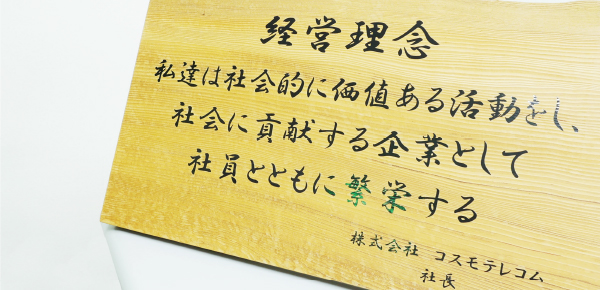 経営理念
私達は社会的に価値ある活動をし、
社会に貢献する企業として
社員とともに繁栄する
株式会社 コスモテレコム
社長